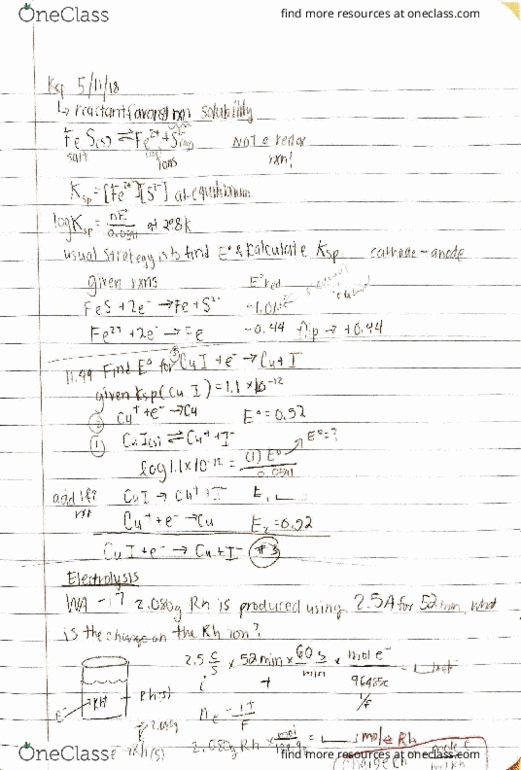 OneClass
find more resources at oneclass.com
Ksp 5/11/18
↳ reactant favored rxn solubility
FeS(s) ⇌ Fe²⁺ + S²⁻(aq) NOT a redox
salt ions rxn!
Ksp = [Fe²⁺][S²⁻] at equilibrium
log Ksp = nE°/0.0591 at 298k
usual strategy is to find E° & calculate Ksp cathode - anode
given rxns E°red
FeS + 2e⁻ → Fe + S²⁻ -1.01
Fe²⁺ + 2e⁻ → Fe -0.44 flip → +0.44
11.99 Find E° for ③ CuI + e⁻ → Cu + I⁻
given Ksp (CuI) = 1.1 × 10⁻¹²
② Cu⁺ + e⁻ → Cu E° = 0.52
① CuI(s) ⇌ Cu⁺ + I⁻ E° = ?
log 1.1×10⁻¹² = (1) E°/0.0591
add 1&2 CuI → Cu⁺ + I⁻ E₁
rxn Cu⁺ + e⁻ → Cu E₂ = 0.52
CuI + e⁻ → Cu + I⁻ #3
Electrolysis
WA - 17 2.080g Rh is produced using 2.5A for 52 min, what
is the charge on the Rh ion?
2.5 C/s × 52 min × 60 s/min × mol e⁻/96485c = mol e⁻
i t 1/F
Rh(s)
e⁻ RH
n e⁻ = it/F
2.080g
Rh(s) 2.080g Rh × mol = mole Rh
OneClass
find more resources at oneclass.com